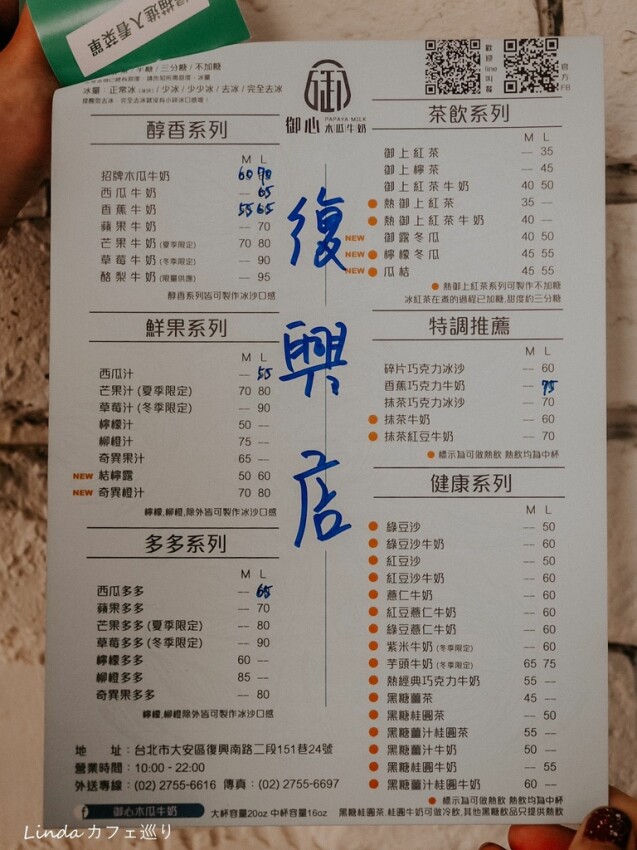 掃進入看菜單
/三分糖/不加糖
冰量:正常冰/少冰/少少冰/去冰/完全去冰
御心 PAPAYA MILK 木瓜牛奶
歡迎line叫餐
官方FB
復興店
醇香系列
M L
招牌木瓜牛奶 60 70
西瓜牛奶 — 65
香蕉牛奶 55 65
蘋果牛奶 — 70
芒果牛奶(夏季限定) 70 80
草莓牛奶(冬季限定) — 90
酪梨牛奶(限量供應) — 95
醇香系列皆可製作冰沙口感
鮮果系列
M L
西瓜汁 — 55
芒果汁(夏季限定) 70 80
草莓汁(冬季限定) — 90
檸檬汁 50 —
柳橙汁 75 —
奇異果汁 65 —
NEW 結檸露 50 60
NEW 奇異橙汁 70 80
檸檬,柳橙,除外皆可製作冰沙口感
多多系列
M L
西瓜多多 — 65
蘋果多多 — 70
芒果多多(夏季限定) — 80
草莓多多(冬季限定) — 90
檸檬多多 60 —
柳橙多多 85 —
奇異果多多 — 80
檸檬,柳橙除外皆可製作冰沙口感
茶飲系列
M L
御上紅茶 — 35
御上檸茶 — 45
御上紅茶牛奶 40 50
熱御上紅茶 35 —
熱御上紅茶牛奶 40 —
NEW 御露冬瓜 40 50
NEW 檸檬冬瓜 45 55
NEW 瓜結 45 55
熱御上紅茶系列可製作不加糖
冰紅茶在煮的過程已加糖,甜度約三分糖
特調推薦
M L
碎片巧克力冰沙 — 60
香蕉巧克力牛奶 — 75
抹茶巧克力冰沙 — 70
抹茶牛奶 — 60
抹茶紅豆牛奶 — 70
標示為可做熱飲 熱飲均為中杯
健康系列
M L
綠豆沙 — 50
綠豆沙牛奶 — 60
紅豆沙 — 50
紅豆沙牛奶 — 60
薏仁牛奶 — 60
紅豆薏仁牛奶 — 60
綠豆薏仁牛奶 — 60
紫米牛奶(冬季限定) — 60
芋頭牛奶(冬季限定) 65 75
熱經典巧克力牛奶 55 —
黑糖薑茶 45 —
黑糖桂圓茶 — 50
黑糖薑汁桂圓茶 55 —
黑糖薑汁牛奶 50 —
黑糖桂圓牛奶 — 55
黑糖薑汁桂圓牛奶 60 —
標示為可做熱飲 熱飲均為中杯
地 址:台北市大安區復興南路二段151巷24號
營業時間:10:00 - 22:00
外送專線:(02) 2755-6616 傳真:(02) 2755-6697
f 御心木瓜牛奶 大杯容量20oz 中杯容量16oz 黑糖桂圓茶 桂圓牛奶可做冷飲,其他黑糖飲品只提供熱飲
Linda カフェ巡り